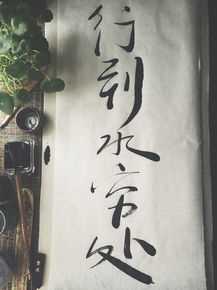 行到水穷处